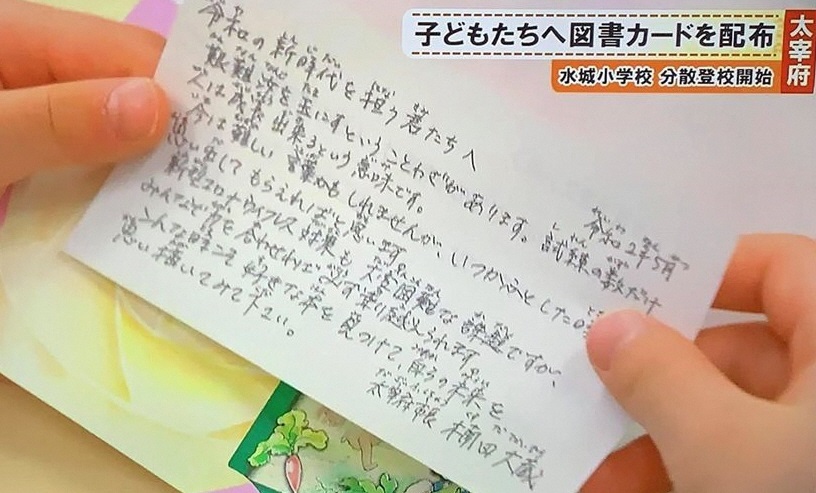 子どもたちへ図書カードを配布
水城小学校 分散登校開始
太宰府
令和の新時代を担う君たちへ
令和2年5月
艱難汝を玉にすということわざがあります。試練の数だけ
人は成長出来るという意味です。
今は難しい言葉かもしれませんが、いつかふとした
思い出してもらえればと思います
新型コロナウイルス対策も大変困難な課題ですが、
みんなで力を合わせれば必ず乗り越えられます
こんな時こそ好きな本を見つけて、自らの未来を
思い描いてみて下さい。
太宰府市長 楠田大蔵